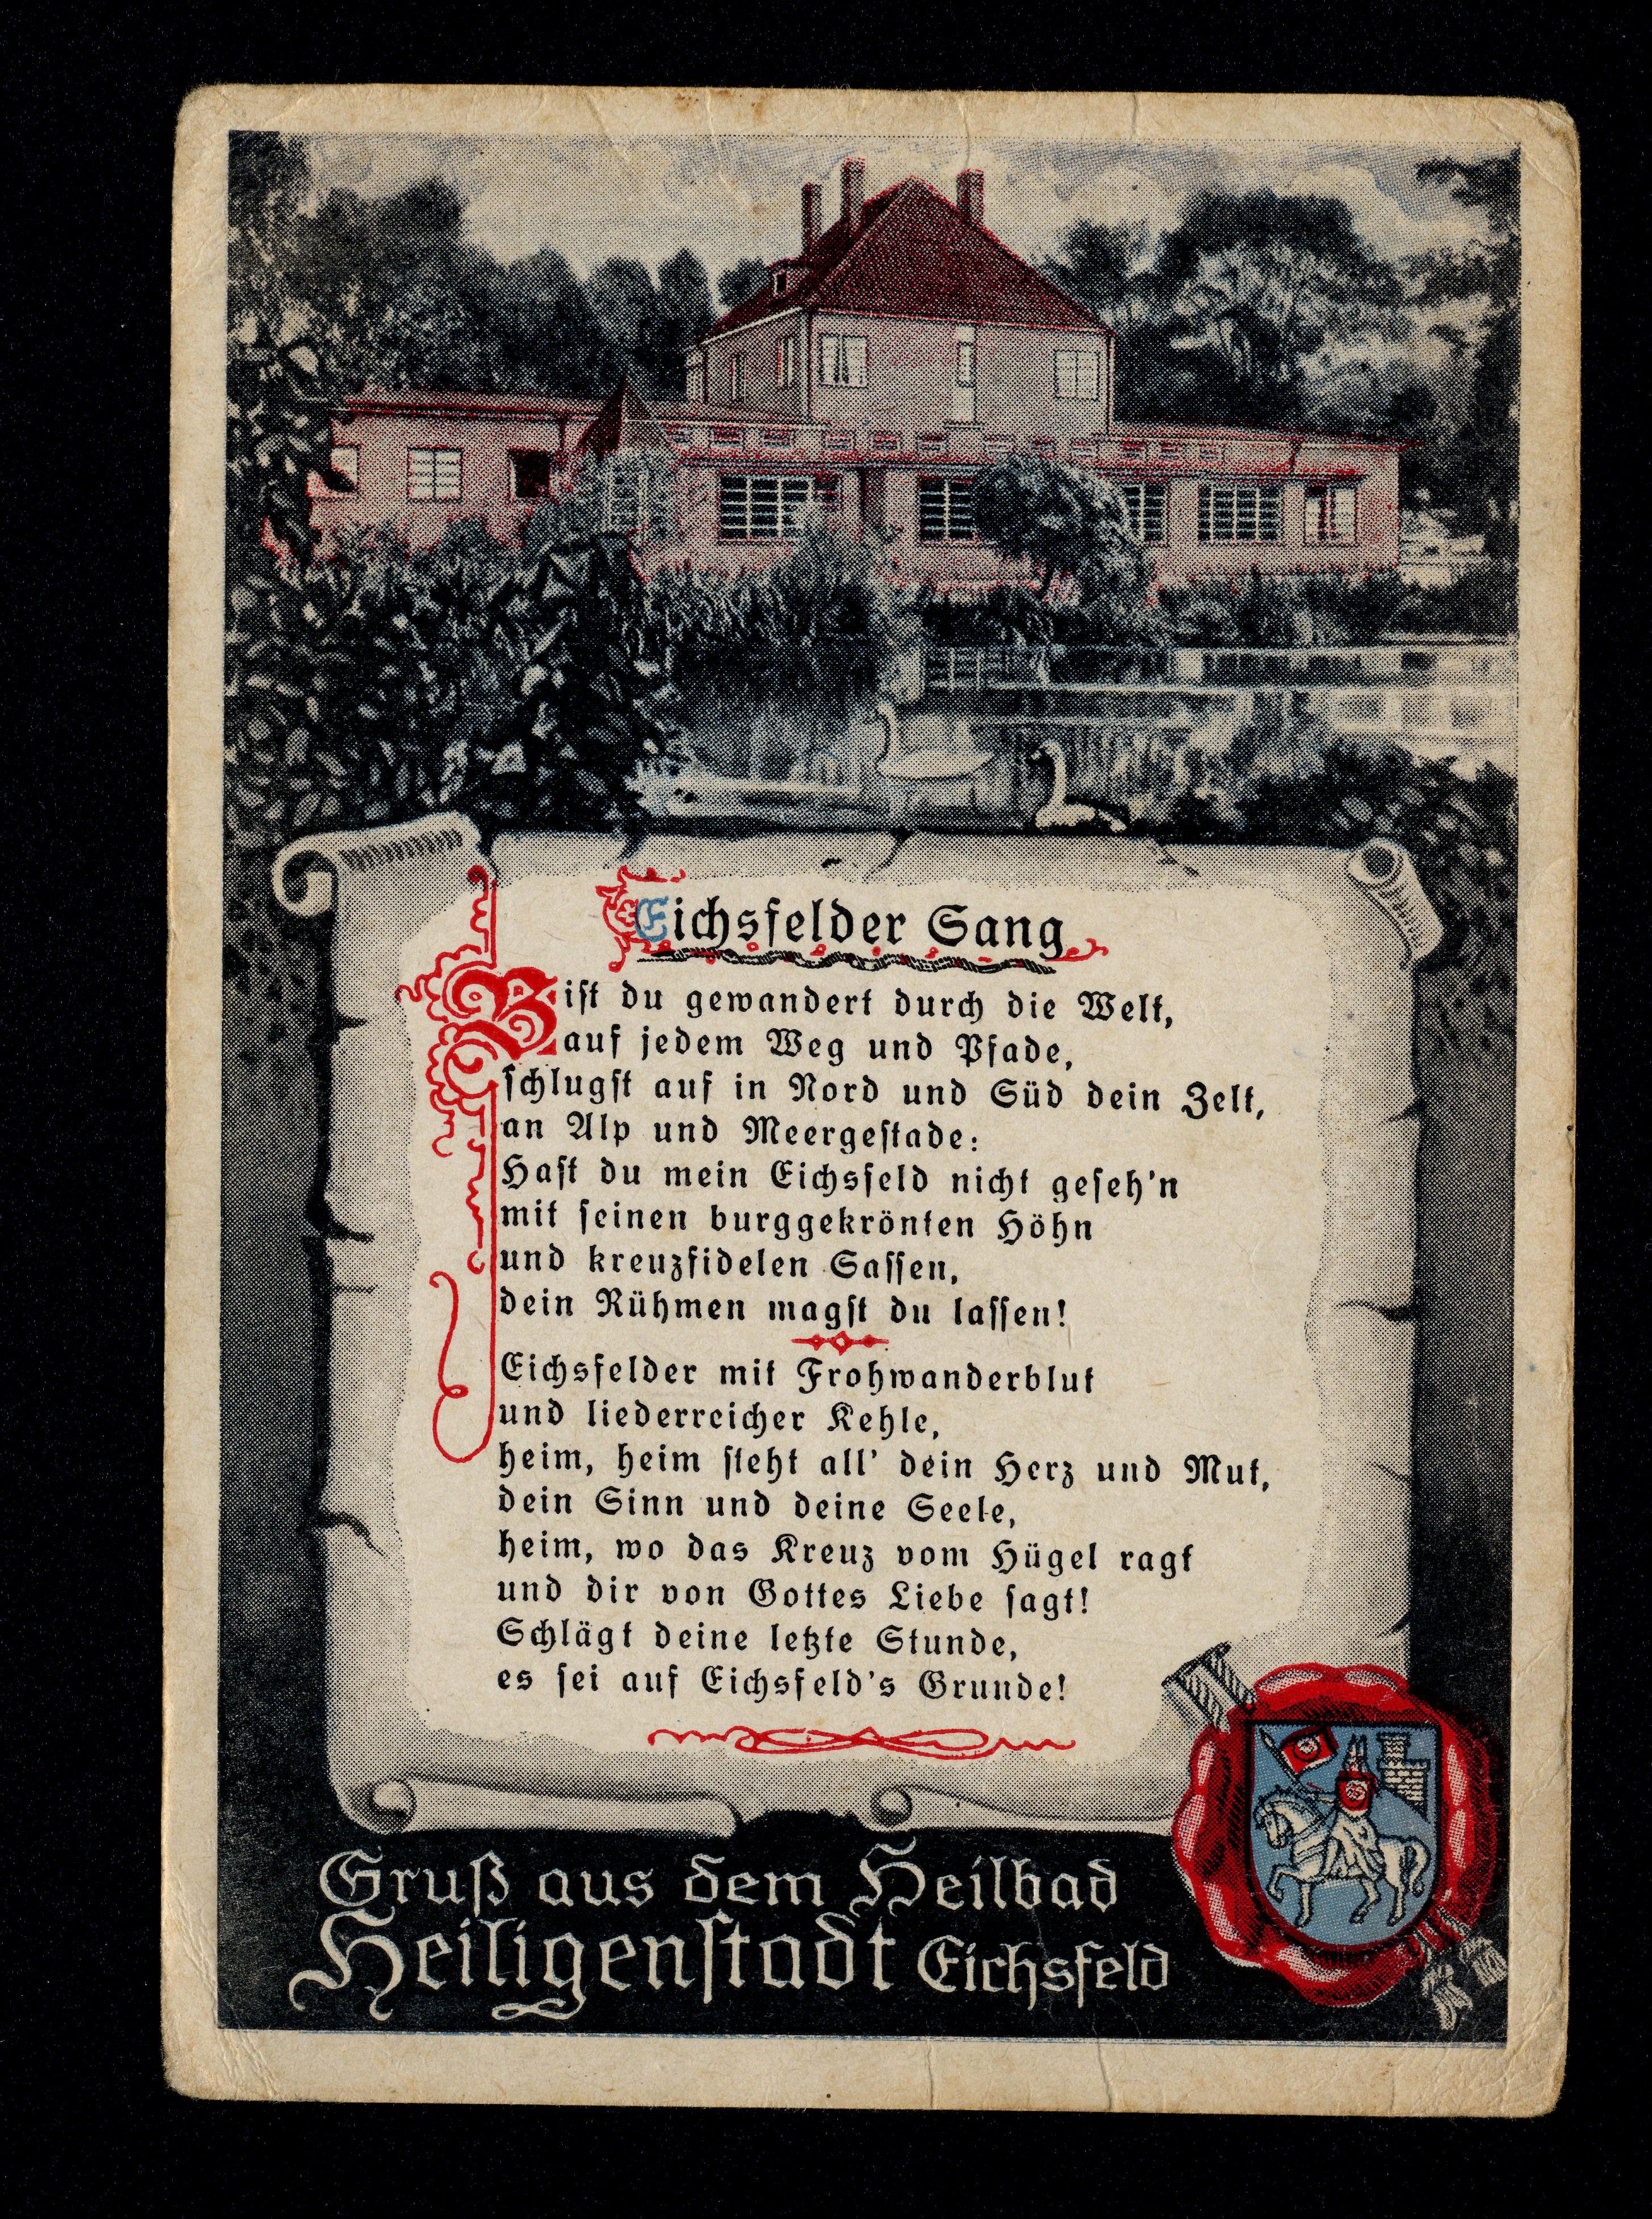 Eichsfelder Sang
Bist du gewandert durch die Welt,
auf jedem Weg und Pfade,
schlugst auf in Nord und Süd dein Zelt,
an Alp und Meergestade:
Hast du mein Eichsfeld nicht geseh'n
mit seinen burggekrönten Höhn
und kreuzfidelen Sassen,
dein Rühmen magst du lassen!
Eichsfelder mit Frohwanderblut
und liederreicher Kehle,
heim, heim steht all' dein Herz und Mut,
dein Sinn und deine Seele,
heim, wo das Kreuz vom Hügel ragt
und dir von Gottes Liebe sagt!
Schlägt deine letzte Stunde,
es sei auf Eichsfeld's Grunde!
Gruß aus dem Heilbad
Heiligenstadt Eichsfeld